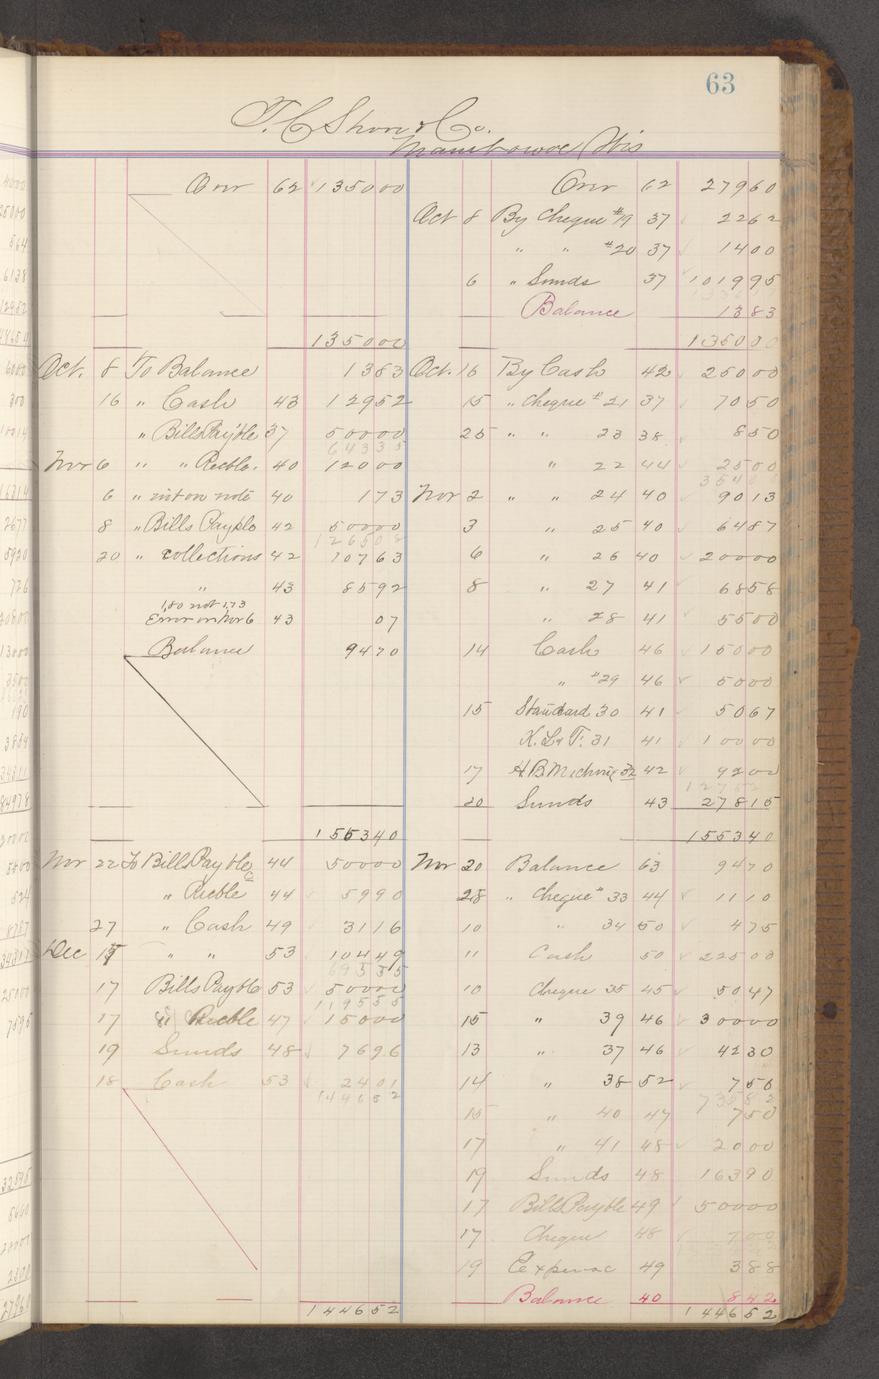 63
T. C. Shove & Co.
Manitowoc Wis
Over 62 135000
135000
Oct. 8 To Balance 1383
16 " Cash 43 12952
" Bills Payble 37 50000
64335
Nov 6 " " Recble. 40 12000
6 " int on note 40 173
8 " Bills Payble 42 50000
126508
20 " collections 42 10763
" 43 8592
1,80 not 1,73
Error on Nov 6 43 07
Balance 9470
155340
Nov 22 To Bills Payble 44 50000
" Recble 44 5990
27 " Cash 49 3116
Dec 15 " " 53 10449
69555
17 Bills Payble 53 50000
119555
17 " Recble 47 15000
19 Sunds 48 7696
18 Cash 53 2401
144652
144652
Over 62 27960
Oct 8 By Cheque #19 37 2262
" " #20 37 1400
6 " Sunds 37 101995
Balance 1383
135000
Oct. 16 By Cash 42 25000
15 " Cheque #21 37 7050
25 " " 23 38 850
" 22 44 2500
35400
Nov 2 " " 24 40 9013
3 " 25 40 6487
6 " 26 40 20000
8 " 27 41 6858
" 28 41 5500
14 Cash 46 15000
" #29 46 5000
15 Standard 30 41 5067
K. L & T. 31 41 10000
17 H. B. 32 42 9200
20 Sunds 43 27815
155340
Nov 20 Balance 63 9470
28 " Cheque # 33 44 1110
10 " 34 50 475
11 Cash 50 22500
10 Cheque 35 45 5047
15 " 39 46 30000
13 " 37 46 4230
14 " 38 52 750
73582
15 " 40 47 750
17 " 41 48 2000
19 Sunds 48 16390
17 Bills Payble 49 50000
17 Cheque 48 700
19 Expense 49 388
Balance 40 842
144652